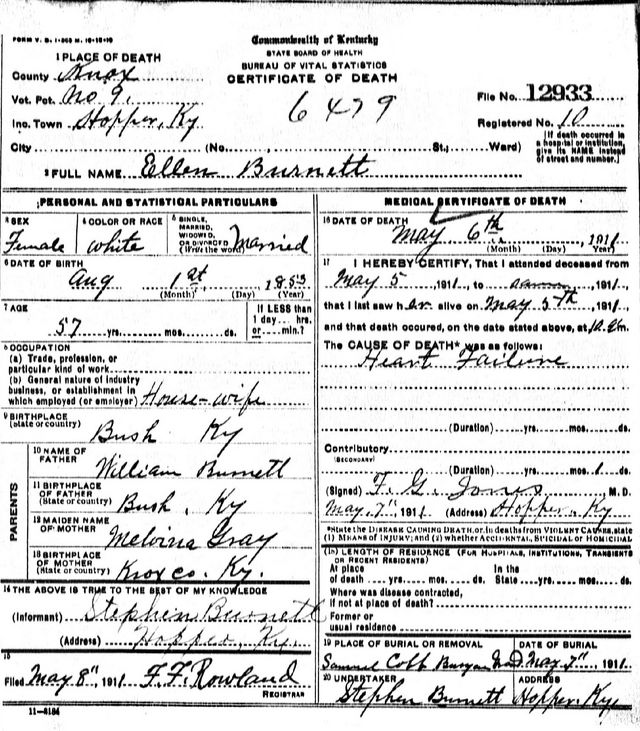 FORM V. S. 1-
Commonwealth of Kentucky
STATE BOARD OF HEALTH
BUREAU OF VITAL STATISTICS
CERTIFICATE OF DEATH
1 PLACE OF DEATH
County Knox
Vot. Pct. No 9.
Inc. Town Hopper, Ky
City (No. St.; Ward)
6479
File No. 12933
Registered No. 10
[If death occurred in a hospital or institution, give its NAME instead of street and number.]
2 FULL NAME Ellen Burnett
PERSONAL AND STATISTICAL PARTICULARS
3 SEX Female
4 COLOR OR RACE White
5 SINGLE, MARRIED, WIDOWED, OR DIVORCED (Write the word) Married
6 DATE OF BIRTH
Aug 1st, 1853
(Month) (Day) (Year)
7 AGE
57 yrs. mos. ds.
If LESS than 1 day hrs. or min.?
8 OCCUPATION
(a) Trade, profession, or
particular kind of work
(b) General nature of industry
business, or establishment in
which employed (or employer) House-wife
9 BIRTHPLACE
(State or country) Bush Ky
PARENTS
10 NAME OF FATHER William Burnett
11 BIRTHPLACE OF FATHER (State or country) Bush, Ky
12 MAIDEN NAME OF MOTHER Melvina Gray
13 BIRTHPLACE OF MOTHER (State or country) Knox co. Ky.
14 THE ABOVE IS TRUE TO THE BEST OF MY KNOWLEDGE
(Informant) Stephen Burnett
(Address) Hopper, Ky.
15
Filed May 8", 1911 F. F. Rowland
REGISTRAR
11-3184
MEDICAL CERTIFICATE OF DEATH
16 DATE OF DEATH
May 6th, 1911
(Month) (Day) (Year)
17 I HEREBY CERTIFY, That I attended deceased from
May 5, 1911, to , 1911,
that I last saw her alive on May 5th, 1911,
and that death occured, on the date stated above, at m.
The CAUSE OF DEATH* was as follows:
Heart Failure
(Duration) yrs. mos. ds.
Contributory
(SECONDARY)
(Duration) yrs. mos. 1 ds.
(Signed) F. G. Jones, M.D.
May, 7", 1911 (Address) Hopper, Ky
*State the DISEASE CAUSING DEATH, or, in deaths from VIOLENT CAUSES, state
(1) MEANS OF INJURY; and (2) whether ACCIDENTAL, SUICIDAL or HOMICIDAL
18 LENGTH OF RESIDENCE (FOR HOSPITALS, INSTITUTIONS, TRANSIENTS
OR RECENT RESIDENTS)
At place of death yrs. mos. ds. In the State yrs. mos. ds.
Where was disease contracted,
if not at place of death?
Former or
usual residence
19 PLACE OF BURIAL OR REMOVAL
DATE OF BURIAL
Samuel Cobb May 7", 1911
20 UNDERTAKER
ADDRESS
Stephen Burnett Hopper, Ky,